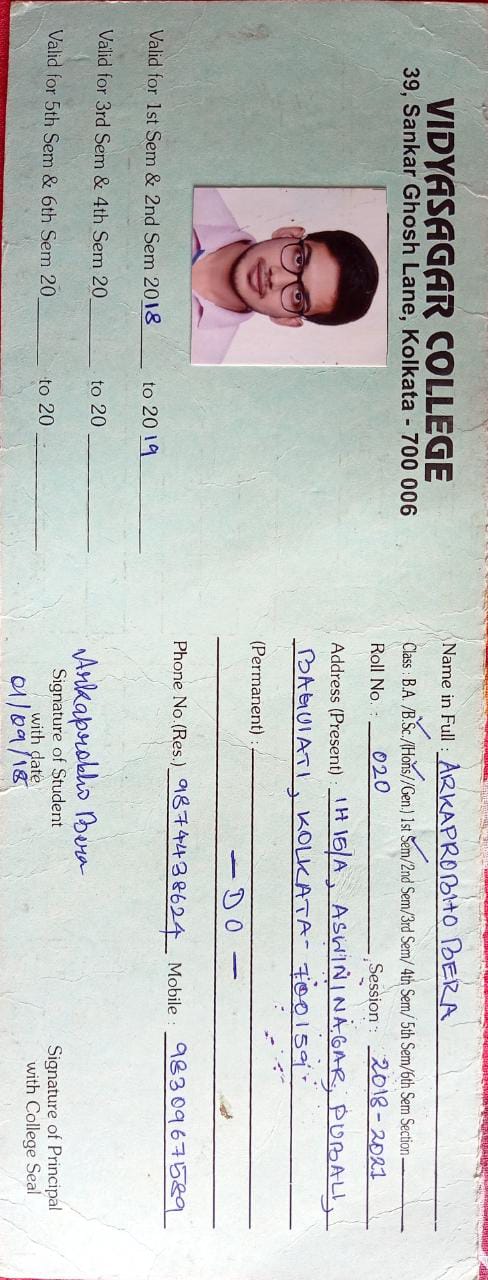 VIDYASAGAR COLLEGE
39, Sankar Ghosh Lane, Kolkata - 700 006
Valid for 1st Sem & 2nd Sem 2018 to 2019
Valid for 3rd Sem & 4th Sem 20____ to 20____
Valid for 5th Sem & 6th Sem 20____ to 20____
Name in Full : ARKAPROBHO BERA
Class : B.A. /B.Sc./(Hons)/(Gen.) 1st Sem/2nd Sem/3rd Sem/ 4th Sem/ 5th Sem/6th Sem Section
Roll No. : 020 Session : 2018-2021
Address (Present) : 1H 15/A, ASWININAGAR, PURBALI,
BAGUIATI, KOLKATA-700159
(Permanent) :
— DO —
Phone No.(Res.) 9874438624 Mobile : 9830967589
Arkaprobho Bera
Signature of Student
with date
01/09/18
Signature of Principal
with College Seal